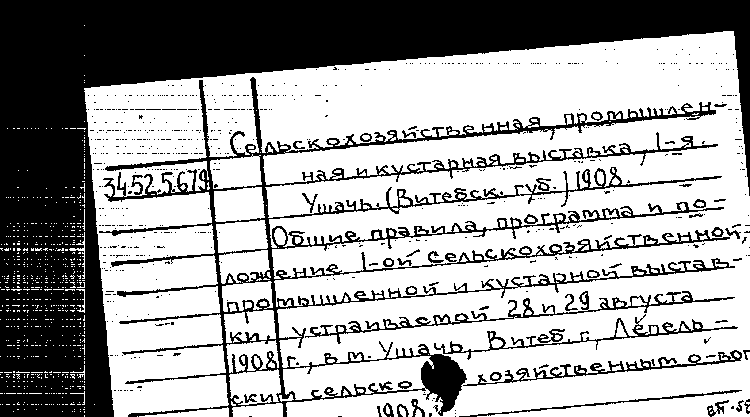 Сельскохозяйственная, промышлен-
ная и кустарная выставка, 1-я.
34.52.5.679.
Ушачь. (Витебск. губ.) 1908.
Общие правила, программа и по-
ложение 1-ой сельскохозяйственной,
промышленной и кустарной выстав-
ки, устраиваемой 28 и 29 августа
1908 г., в м. Ушачь, Витеб. г., Лепель-
ским сельско хозяйственным о-вом
1908.